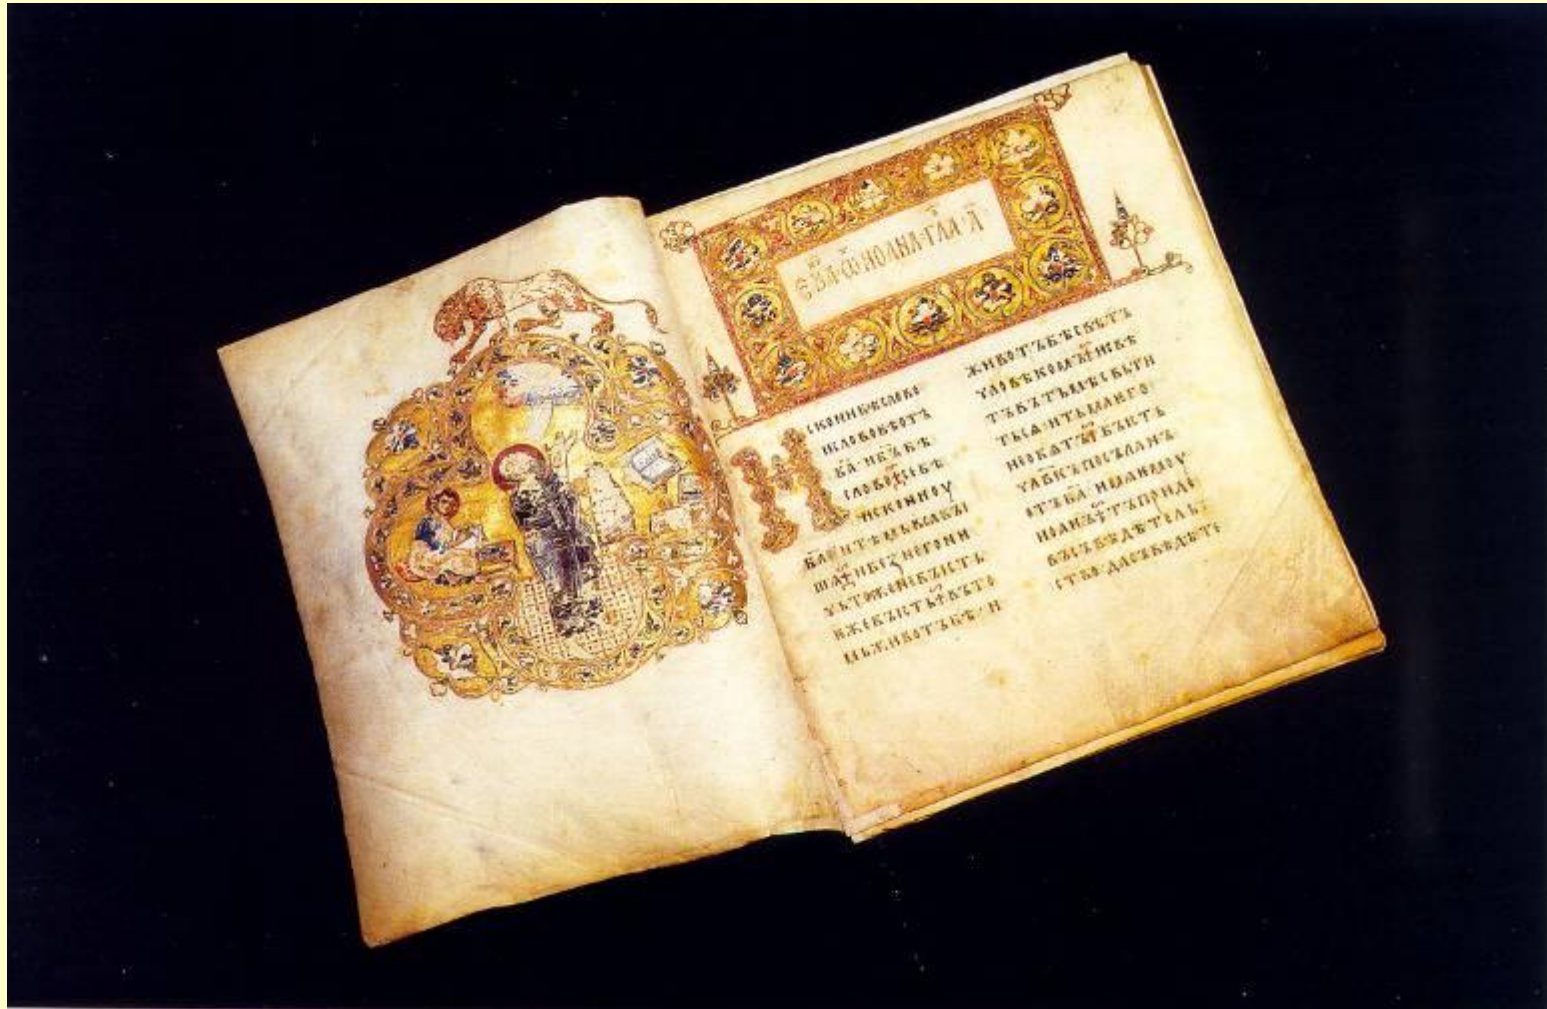 ЄВА· Ѿ ИОАНА· ГЛА· А҃
ИСКОНИ БѢ СЛОВО
И СЛОВО БѢ ОТЪ
Б҃А· И Б҃Ъ БѢ
СЛОВО· СЕ БѢ
ИСКОНИ ОУ
Б҃А· И ТѢМЬ ВЬСѦ БЫ
ШѦ· И БЕЗ НЕГО НИ
ЧЬТОЖЕ НЕ БЫСТЬ
ѤЖЕ БЫСТЬ· ВЪ ТО
МЬ ЖИВОТЪ БѢ· И
ЖИВОТЪ БѢ СВѢТЪ
ЧЛОВѢКОМЪ· И СВѢ
ТЪ ВЪ ТЬМѢ СВЬТИ
ТЬСѦ· И ТЬМА ѤГО
НЕ ОБѦТЪ· БЫСТЬ
ЧЛ҃ВКЪ ПОСЪЛАНЪ
ОТЪ Б҃А· ИМѦ ЕМОУ
ИОАНЪ· ТЪ ПРИДЕ
ВЪ СЪВѢДѢТЕЛЬ
СТВО· ДА СЪВѢДѢТЕ